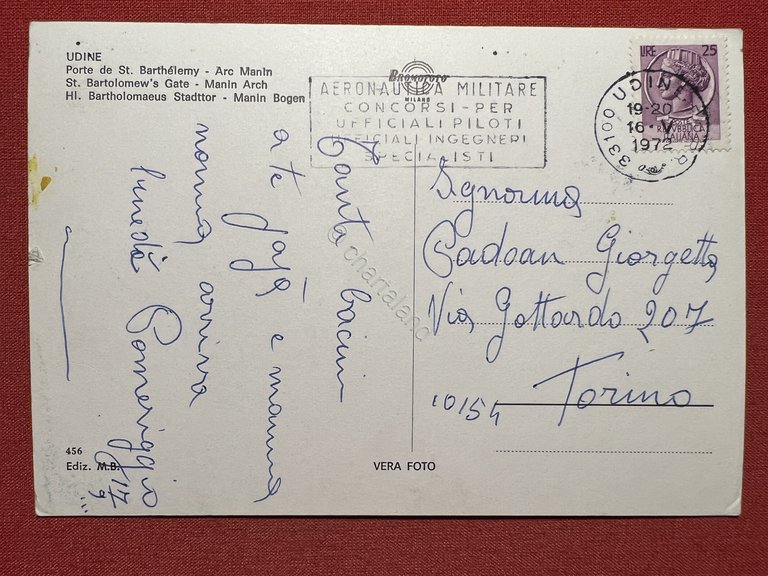 UDINE
Porte de St. Barthélemy - Arc Manin
St. Bartolomew's Gate - Manin Arch
Hl. Bartholomaeus Stadttor - Manin Bogen
BROMOFOTO
MILANO
AERONAUTICA MILITARE
CONCORSI-PER
UFFICIALI PILOTI
UFFICIALI INGEGNERI
SPECIALISTI
LIRE 25
POSTE
REPUBBLICA
ITALIANA
33100 UDINE
19-20
16·V
1972
Tanta bacini
a te papà e mamma
nonna arriva
lunedì Pomeriggio
Signorina
Padoan Giorgetta
Via Gottardo 207
10154 Torino
chartaland
456
Ediz. M.B.
VERA FOTO